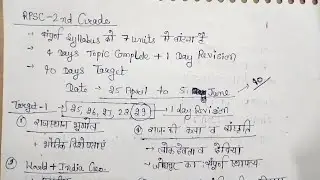 RPSC-2nd Grade
- संपूर्ण syllabus को 7 units में बांटा है
- 4 days Topic Complete + 1 Day Revision
- 40 Days Target
Date :- 25 April to 5 June
40
Target-1 25, 26, 27, 28, 29 → 1 day Revision
① राजस्थान भूगोल
- भौतिक विशेषताएं
② राज. की कला व संस्कृति
- लोकदेवता व देवियां
- का संपूर्ण
③ World + India Geo.